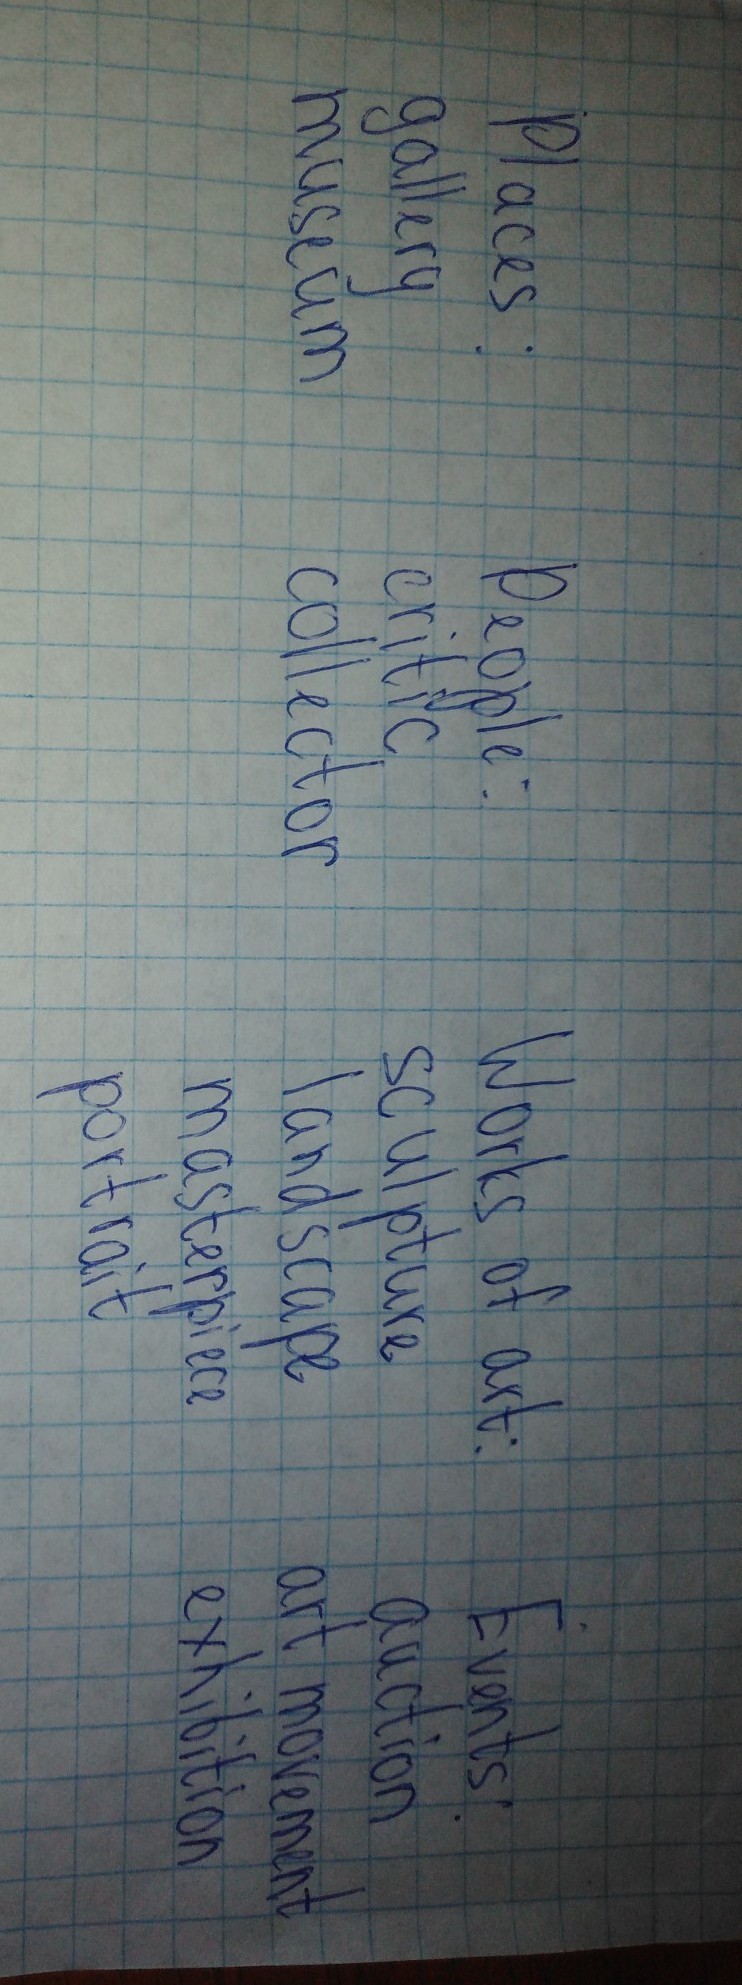 Places:
gallery
museum
People:
critic
collector
Works of art:
sculpture
landscape
masterpiece
portrait
Events:
auction
art movement
exhibition